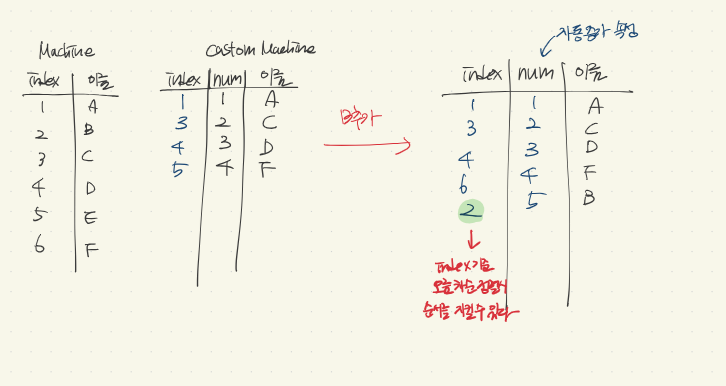 Machine
index 이름
1 A
2 B
3 C
4 D
5 E
6 F
Custom Machine
index num 이름
1 1 A
3 2 C
4 3 D
5 4 F
B추가
자동증가 속성
index num 이름
1 1 A
3 2 C
4 3 D
6 4 F
2 5 B
index 기준
오름차순 정렬시
순서를 지킬 수 있다